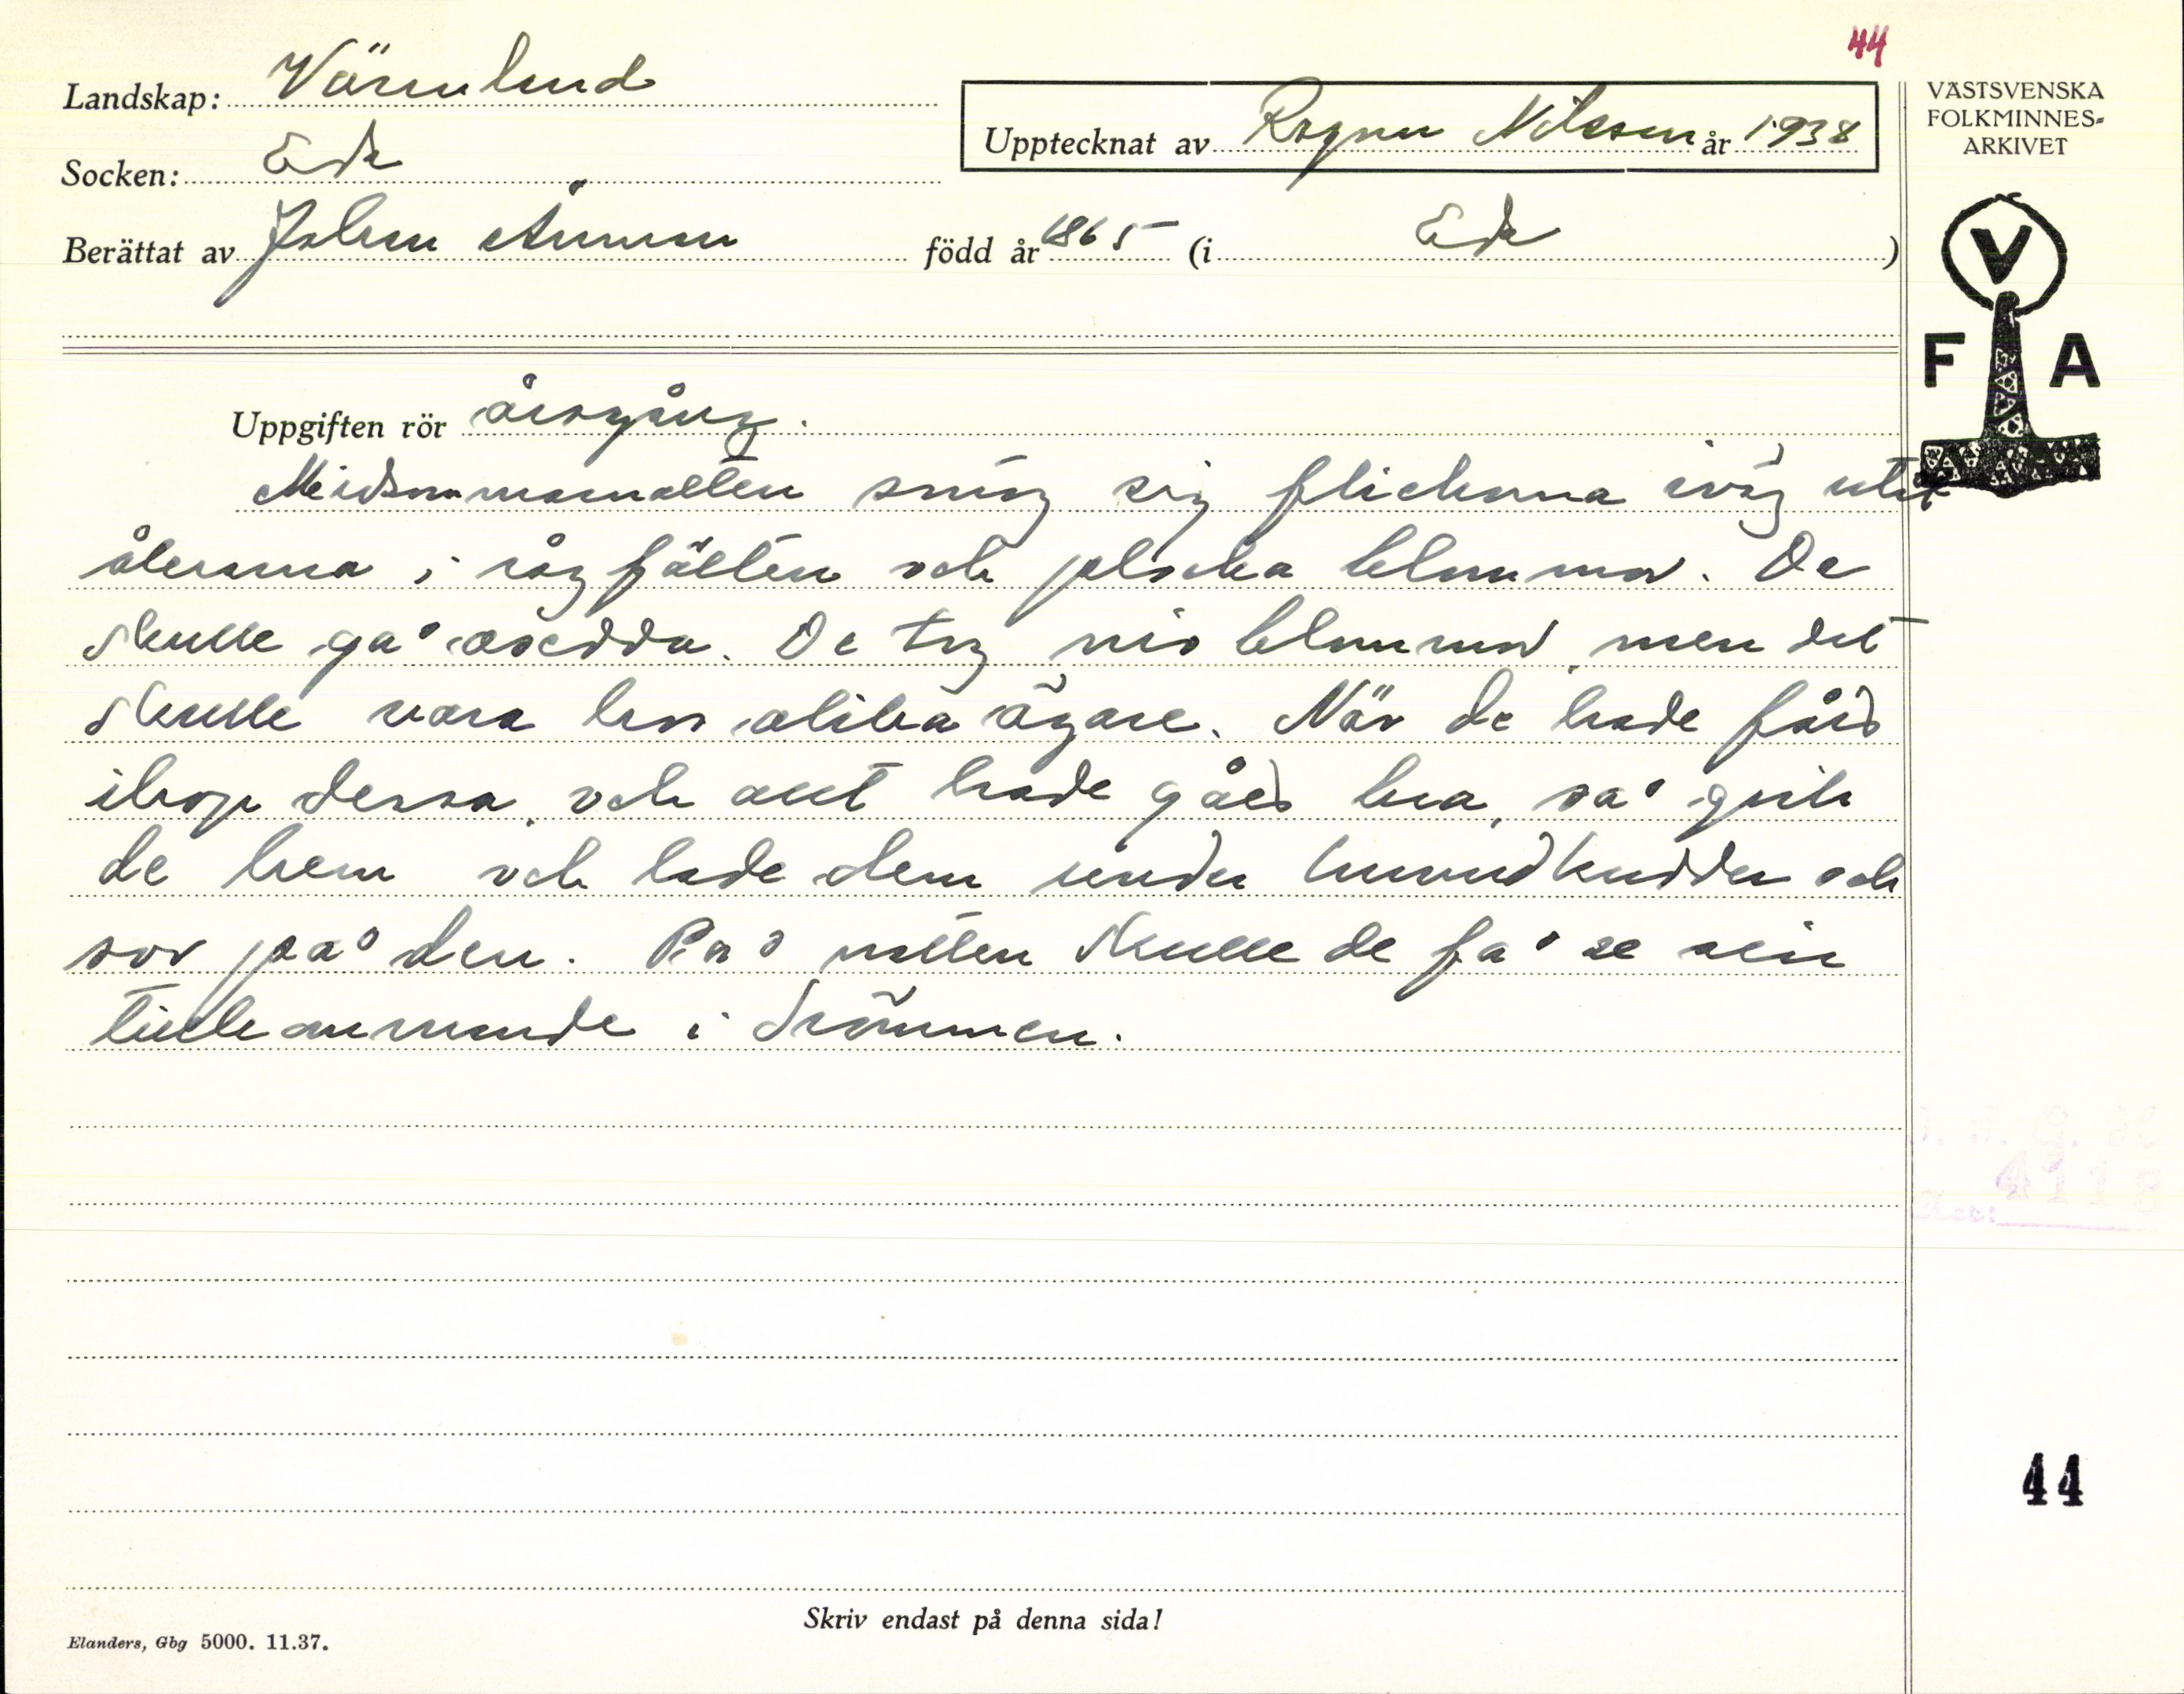 44
Landskap: Värmland
Upptecknat av Ragnar Nilsson år 1938
Socken: Eda
Berättat av Johan Åmman född år 1865 (i Eda)
VÄSTSVENSKA
FOLKMINNES=
ARKIVET
V
F A
Uppgiften rör årsgång.
Midsommarnatten smög sig flickorna iväg utåt
åkrarna i rågfälten och plocka blommor. De
skulle gå osedda. De tog nio blommor, men det
skulle vara hos olika ägare. När de hade fåid
ihop dessa, och allt hade gåed bra, så gick
de hem och lade dem under huvudkudden och
sov på den. På natten skulle de få se sin
tillkommande i drömmen.
4118
Acc:
44
Skriv endast på denna sida!
Elanders, Gbg 5000. 11.37.